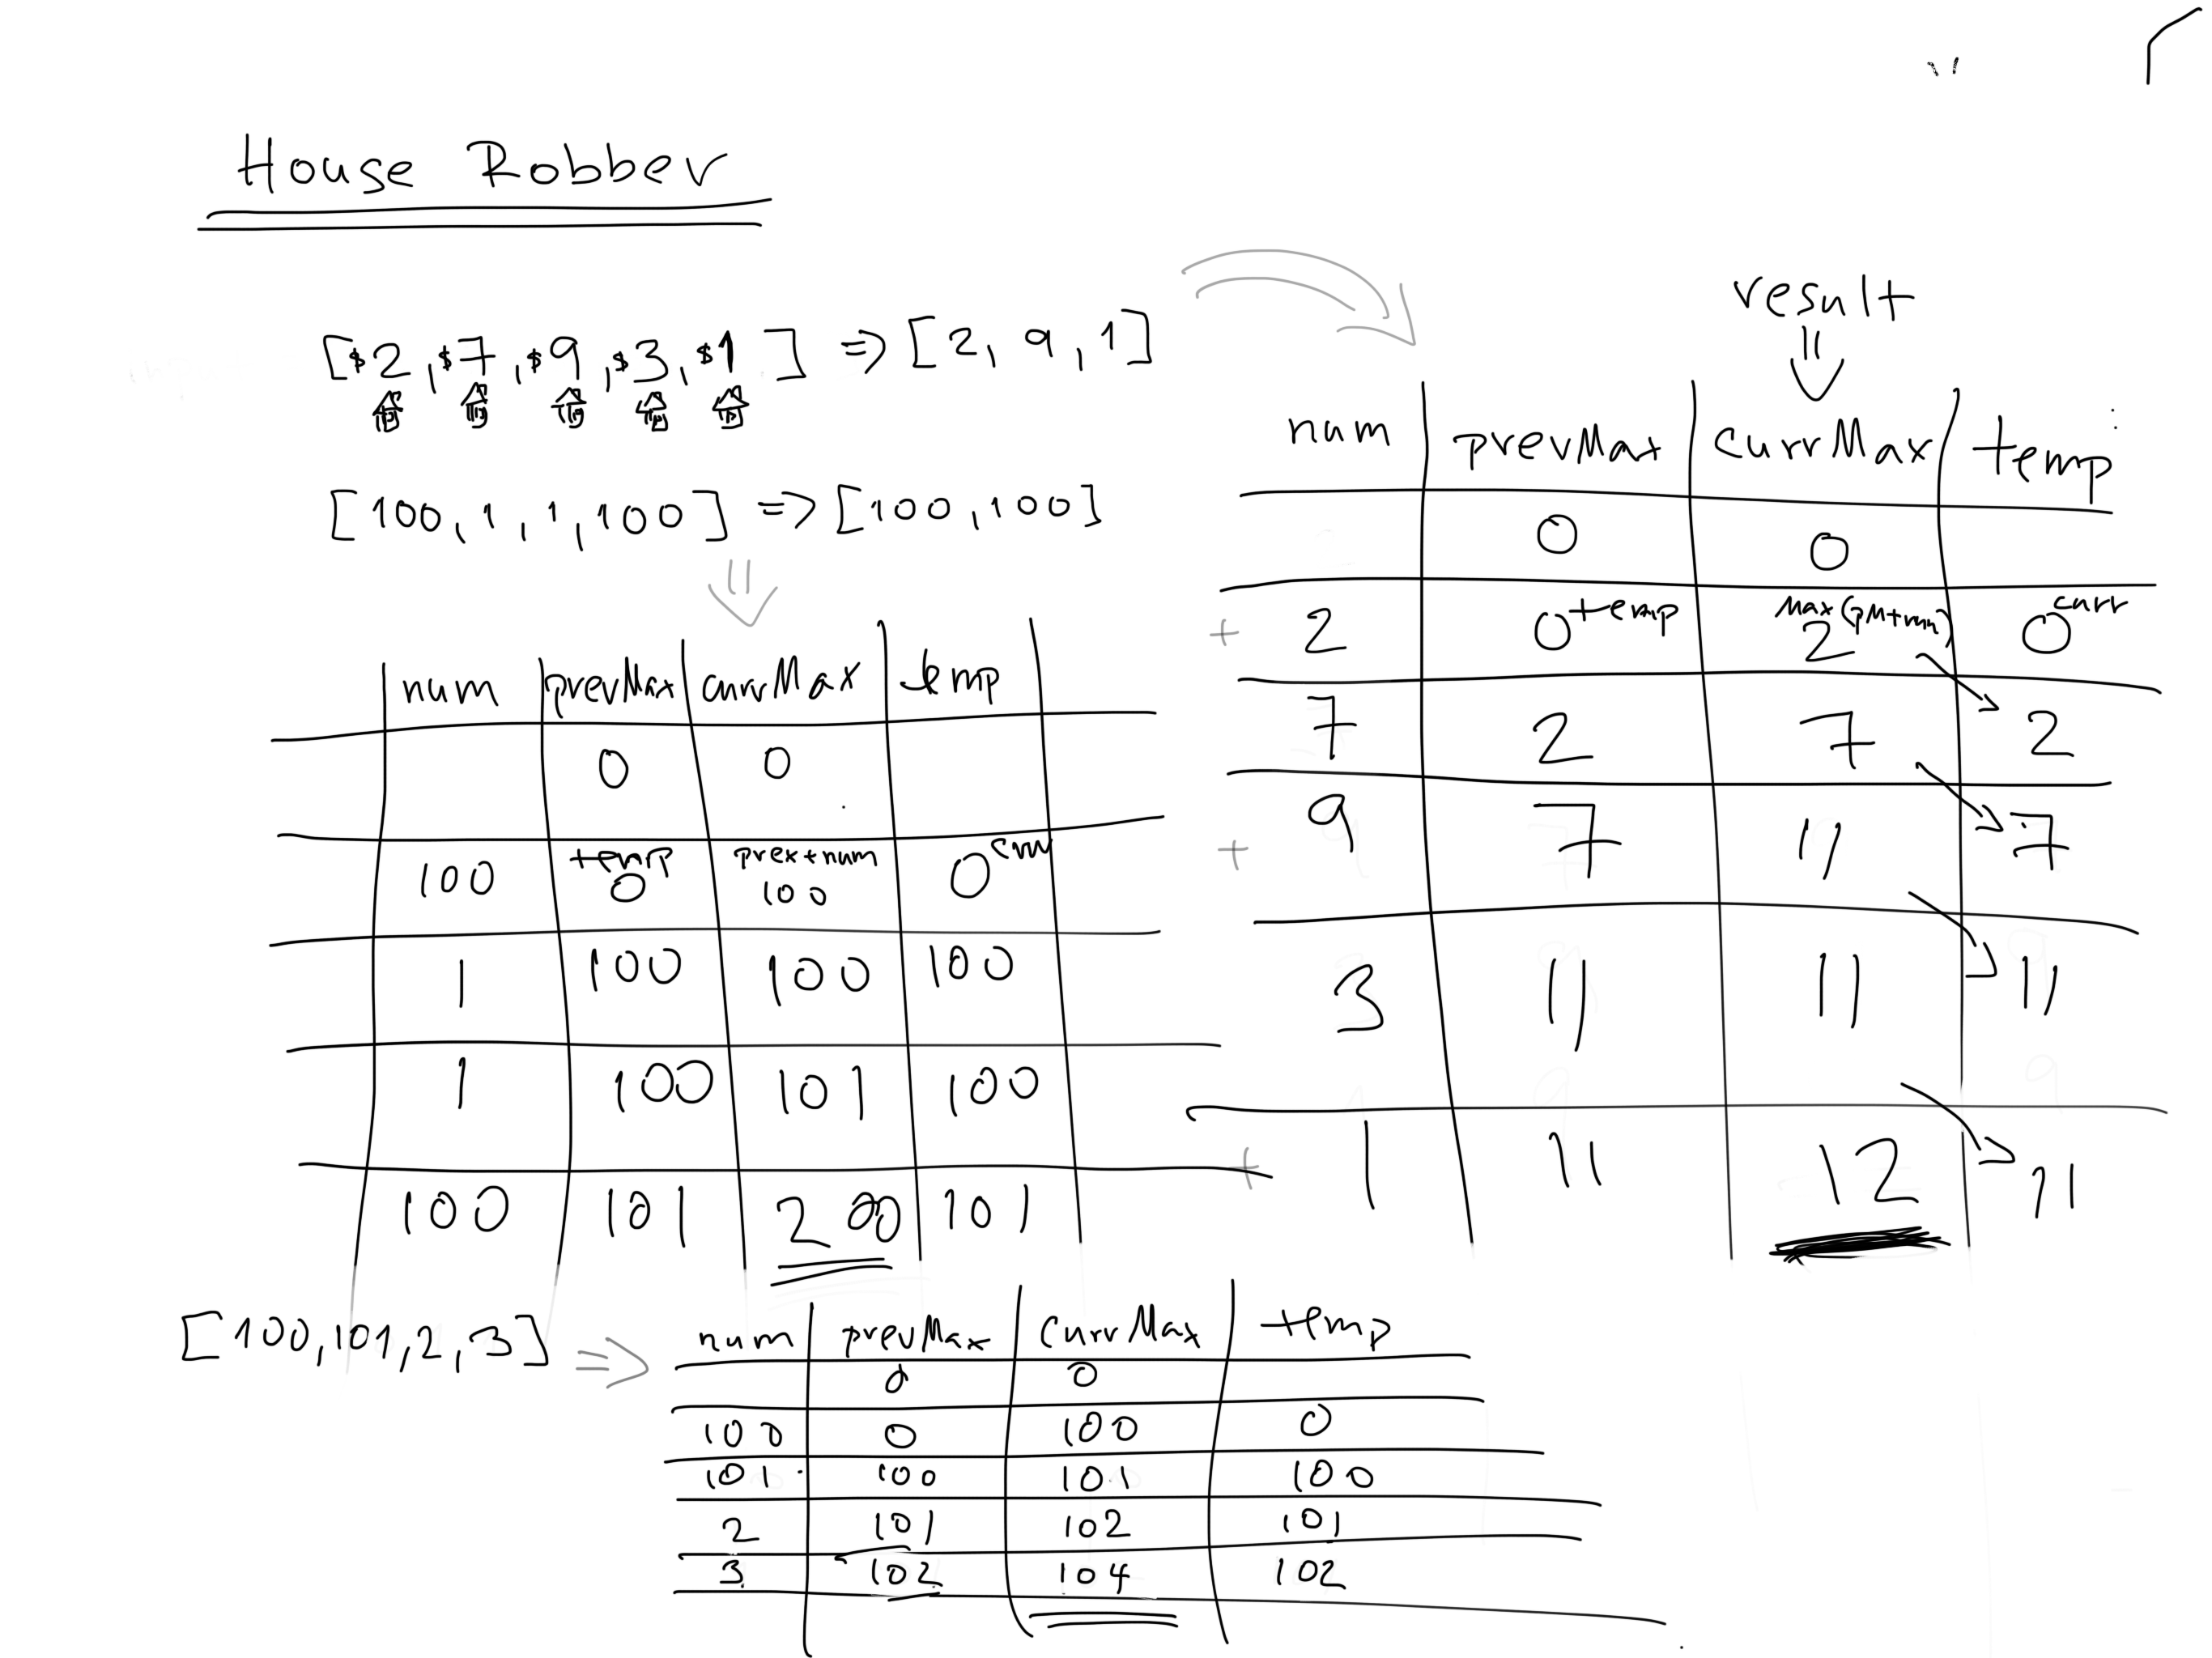 House Robber
[$2,$7,$9,$3,$1] => [2, 9, 1]
[100,1,1,100] => [100,100]
num prevMax currMax temp
0 0
100 temp 0 prex+num 100 0 curr
1 100 100 100
1 100 101 100
100 101 200 101
result
num prevMax currMax temp
0 0
+ 2 0 temp Max(pM+num) 2 0 curr
7 2 7 2
+ 9 7 11 7
3 11 11 11
+ 1 11 12 11
[100,101,2,3] =>
num prevMax currMax temp
0 0
100 0 100 0
101 100 101 100
2 101 102 101
3 102 104 102